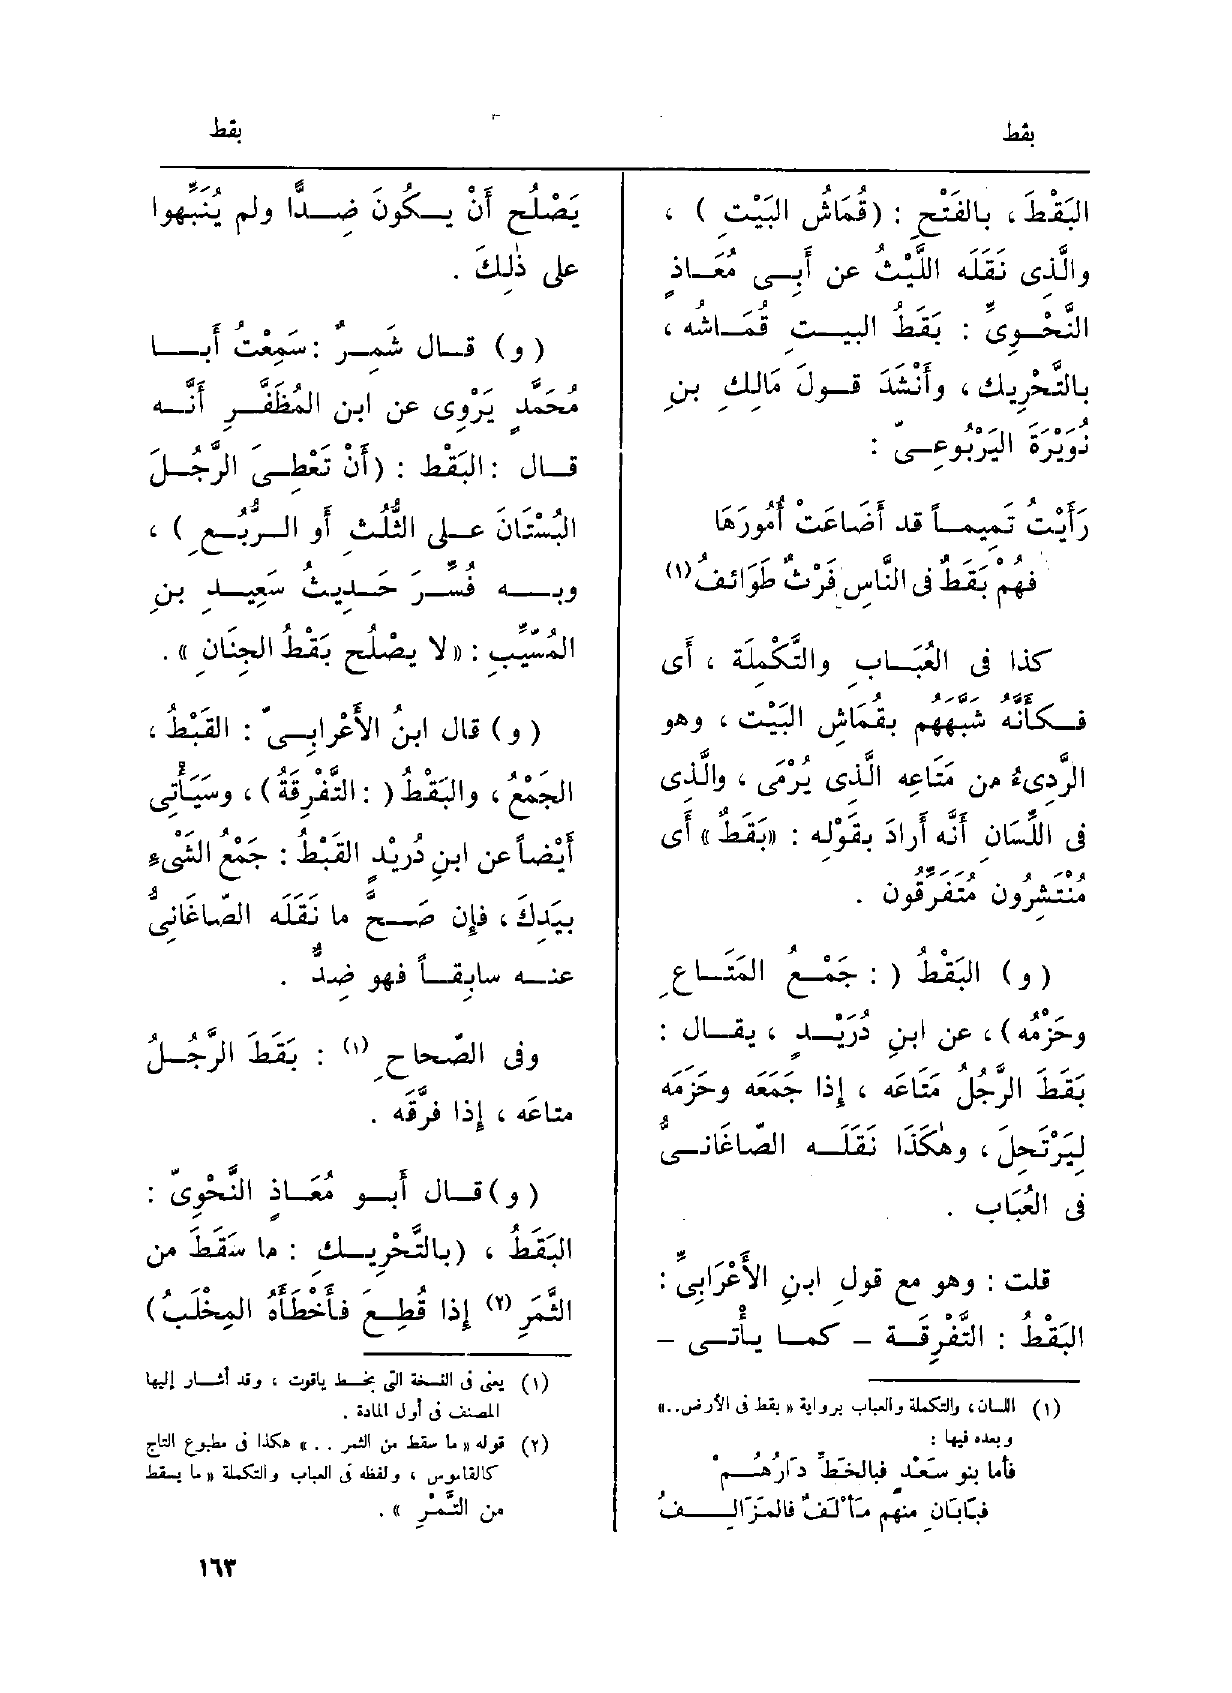 بقط
بقط
البَقْطَ، بالفَتْحِ : (قُمَاشُ البَيْتِ) ،
والَّذِى نَقَلَه اللَّيْثُ عن أَبِى مُعَاذٍ
النَّحْوِىِّ : بَقَطُ البيت قُمَاشُه ،
بالتَّحْرِيك ، وأَنْشَدَ قولَ مَالِكِ بنِ
نُوَيْرَةَ اليَرْبُوعِىّ :
رَأَيْتُ تَمِيماً قد أَضَاعَتْ أُمُورَهَا
فهُمْ بَقَطٌ فى النَّاسِ فَرْثٌ طَوَائفُ (١)
كذا فى العُبَابِ والتَّكْمِلَة ، أَى
فكَأَنَّهُ شَبَّهَهُم بقُمَاشِ البَيْت ، وهو
الرَّدِىءُ من مَتَاعِه الَّذِى يُرْمَى ، والَّذِى
فى اللِّسَان أَنَّه أَرادَ بقَوْلِه : «بَقَطٌ» أَى
مُنْتَشِرُون مُتَفَرِّقُون .
(و) البَقْطُ ( : جَمْعُ المَتَاعِ
وحَزْمُه) ، عن ابنِ دُرَيْدٍ ، يقال :
بَقَطَ الرَّجُلُ مَتَاعَه ، إِذا جَمَعَه وحَزَمَه
لِيَرْتَحِلَ ، وهٰكَذَا نَقَلَه الصّاغَانِىُّ
فى العُبَاب .
قلت : وهو مع قولِ ابنِ الأَعْرَابِىِّ :
البَقْطُ : التَّفْرِقَة – كما يأْتى –
(١) اللسان، والتكملة والعباب برواية « بقط فى الأرض..»
وبعده فيها :
فأما بنو سَعْدٍ فبالخَطِّ دَارُهُمْ
فبَابَان منهم مَأْلَفٌ فالمَزَالِفُ
يَصْلُح أَنْ يكُونَ ضِدًّا ولم يُنَبِّهوا
على ذٰلِكَ .
(و) قال شَمِرٌ : سَمِعْتُ أَبا
مُحَمَّدٍ يَرْوِى عن ابن المُظَفَّرِ أَنَّه
قال : البَقْط : (أَنْ تُعْطِىَ الرَّجُلَ
البُسْتَانَ على الثُّلُثِ أَو الرُّبُعِ) ،
وبه فُسِّرَ حَدِيثُ سَعِيدِ بنِ
المُسَيِّبِ : «لا يصْلُح بَقْطُ الجِنَانِ» .
(و) قال ابنُ الأَعْرابِىّ : القَبْطُ ،
الجَمْعُ ، والبَقْطُ ( : التَّفْرِقَةُ) ، وسَيَأْتِى
أَيْضاً عن ابنِ دُرَيْدٍ القَبْطُ : جَمْعُ الشَّىءِ
بيَدِكَ ، فإِن صَحَّ ما نَقَلَه الصّاغَانِىُّ
عنه سابِقاً فهو ضِدٌّ .
وفى الصّحاحِ (١) : بَقَطَ الرَّجُلُ
متاعَه ، إِذا فرَّقَه .
(و) قال أَبو مُعَاذٍ النَّحْوِىّ :
البَقَطُ ، (بالتَّحْرِيكِ : ما سَقَطَ من
الثَّمَرِ (٢) إِذا قُطِعَ فأَخْطَأَهُ المِخْلَبُ)
(١) يعنى فى النسخة التى بخط ياقوت ، وقد أشار إليها
المصنف فى أول المادة .
(٢) قوله « ما سقط من الثمر . . » هكذا فى مطبوع التاج
كالقاموس ، ولفظه فى العباب والتكملة « ما يسقط
من التَّمْرِ » .
١٦٣